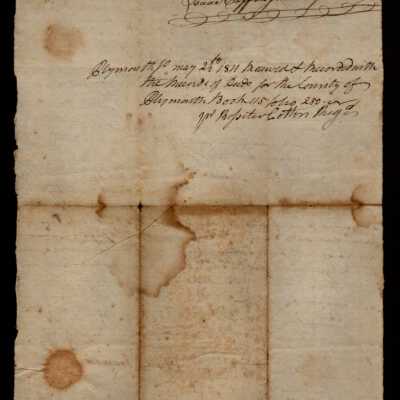 Isaac
Plymouth Ss. may 24th 1811 Received & Recorded with
the Records of Deeds for the County of
Plymouth Book 115 folio 250
pr Rossiter Cotton Regr